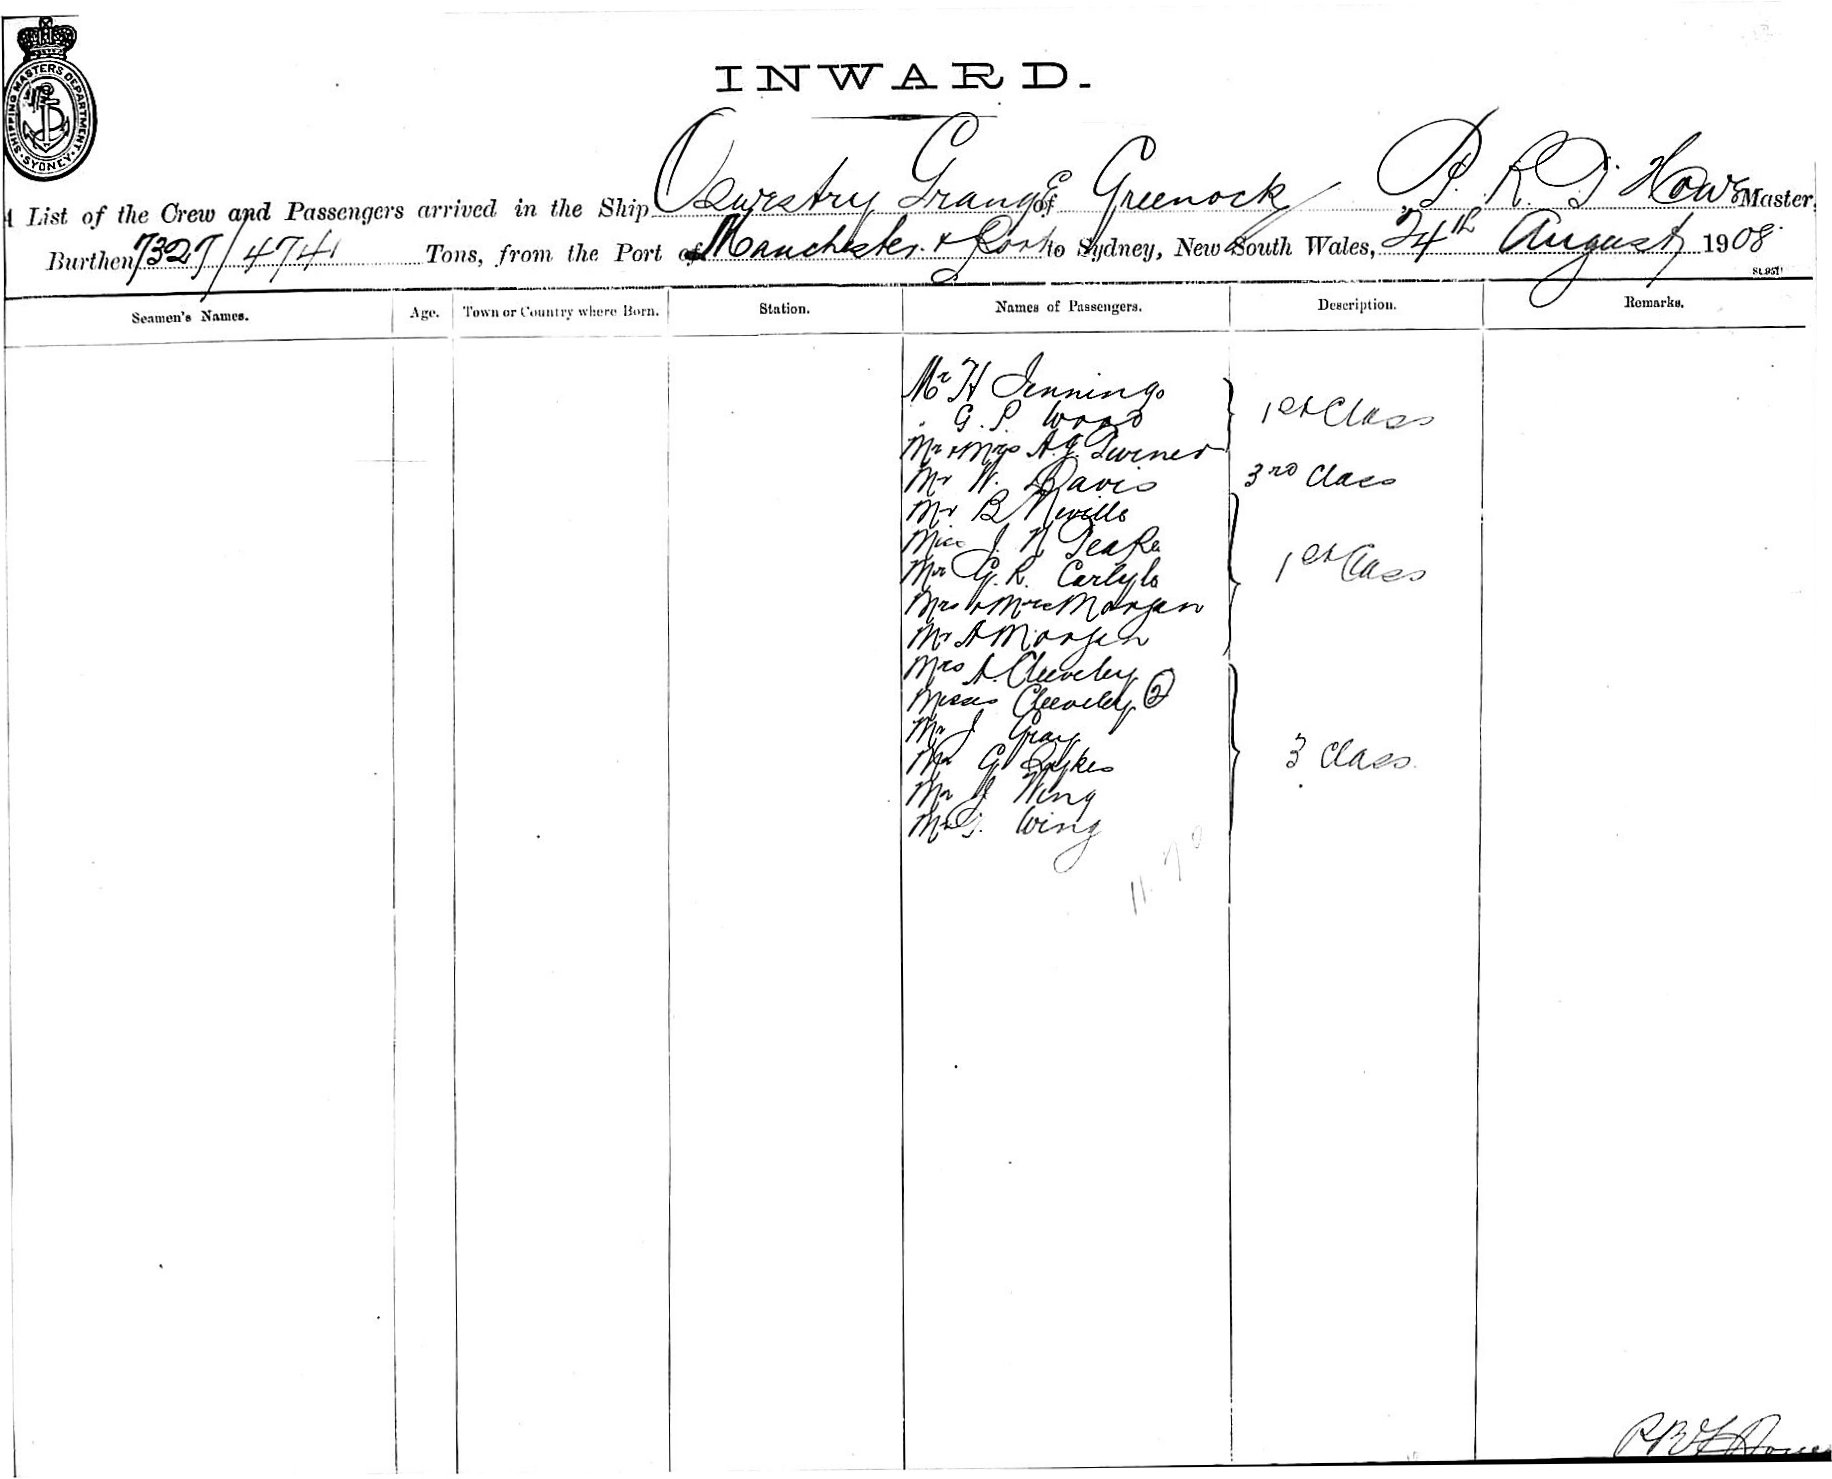 SHIPPING MASTERS DEPARTMENT · SYDNEY ·
INWARD.
A List of the Crew and Passengers arrived in the Ship Oswestry Grange of Greenock, P. R. Howe Master,
Burthen 7327/474 Tons, from the Port of Manchester & to Sydney, New South Wales, 24th August 1908
Seamen's Names. Age. Town or Country where Born. Station. Names of Passengers. Description. Remarks.
Mr H Jennings
" G. P. Wood 1st Class
Mr & Mrs A. J. Turner
Mr W. Davis 3rd Class
Mr B Neville
Miss J. N Peake
Mr G. R. Carlyle 1st Class
Mrs & Mrs Morgan
Mr A Morgan
Mrs A. Cleeveley
Misses Cleeveley 2
Mr J Gray
Mr G Sykes 3 Class.
Mr J Wing
Mr G. Wing